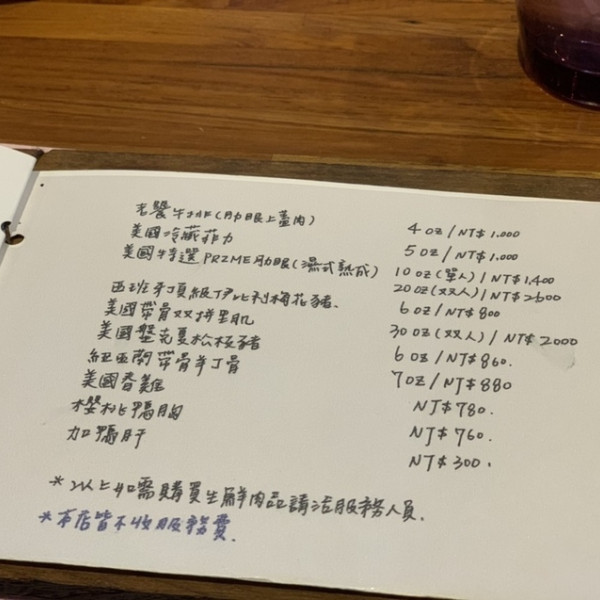 老饕牛排(肋眼上蓋肉) 4 oz / NT$ 1,000
美國冷藏菲力 5 oz / NT$ 1,000
美國特選 PRIME 肋眼(濕式熟成) 10 oz (單人) / NT$ 1,400
20 oz (双人) / NT$ 2600
西班牙頂級伊比利梅花豬. 6 oz / NT$ 800
美國帶骨双拼里肌 30 oz (双人) / NT$ 2000
美國盤克夏松板豬 6 oz / NT$ 860.
紐西蘭帶骨羊丁骨 7 oz / NT$ 880
美國香雞 NT$ 780.
櫻桃鴨胸 NT$ 760.
加鴨肝 NT$ 300.
*以上如需購買生鮮肉品請洽服務人員.
*本店皆不收服務費.